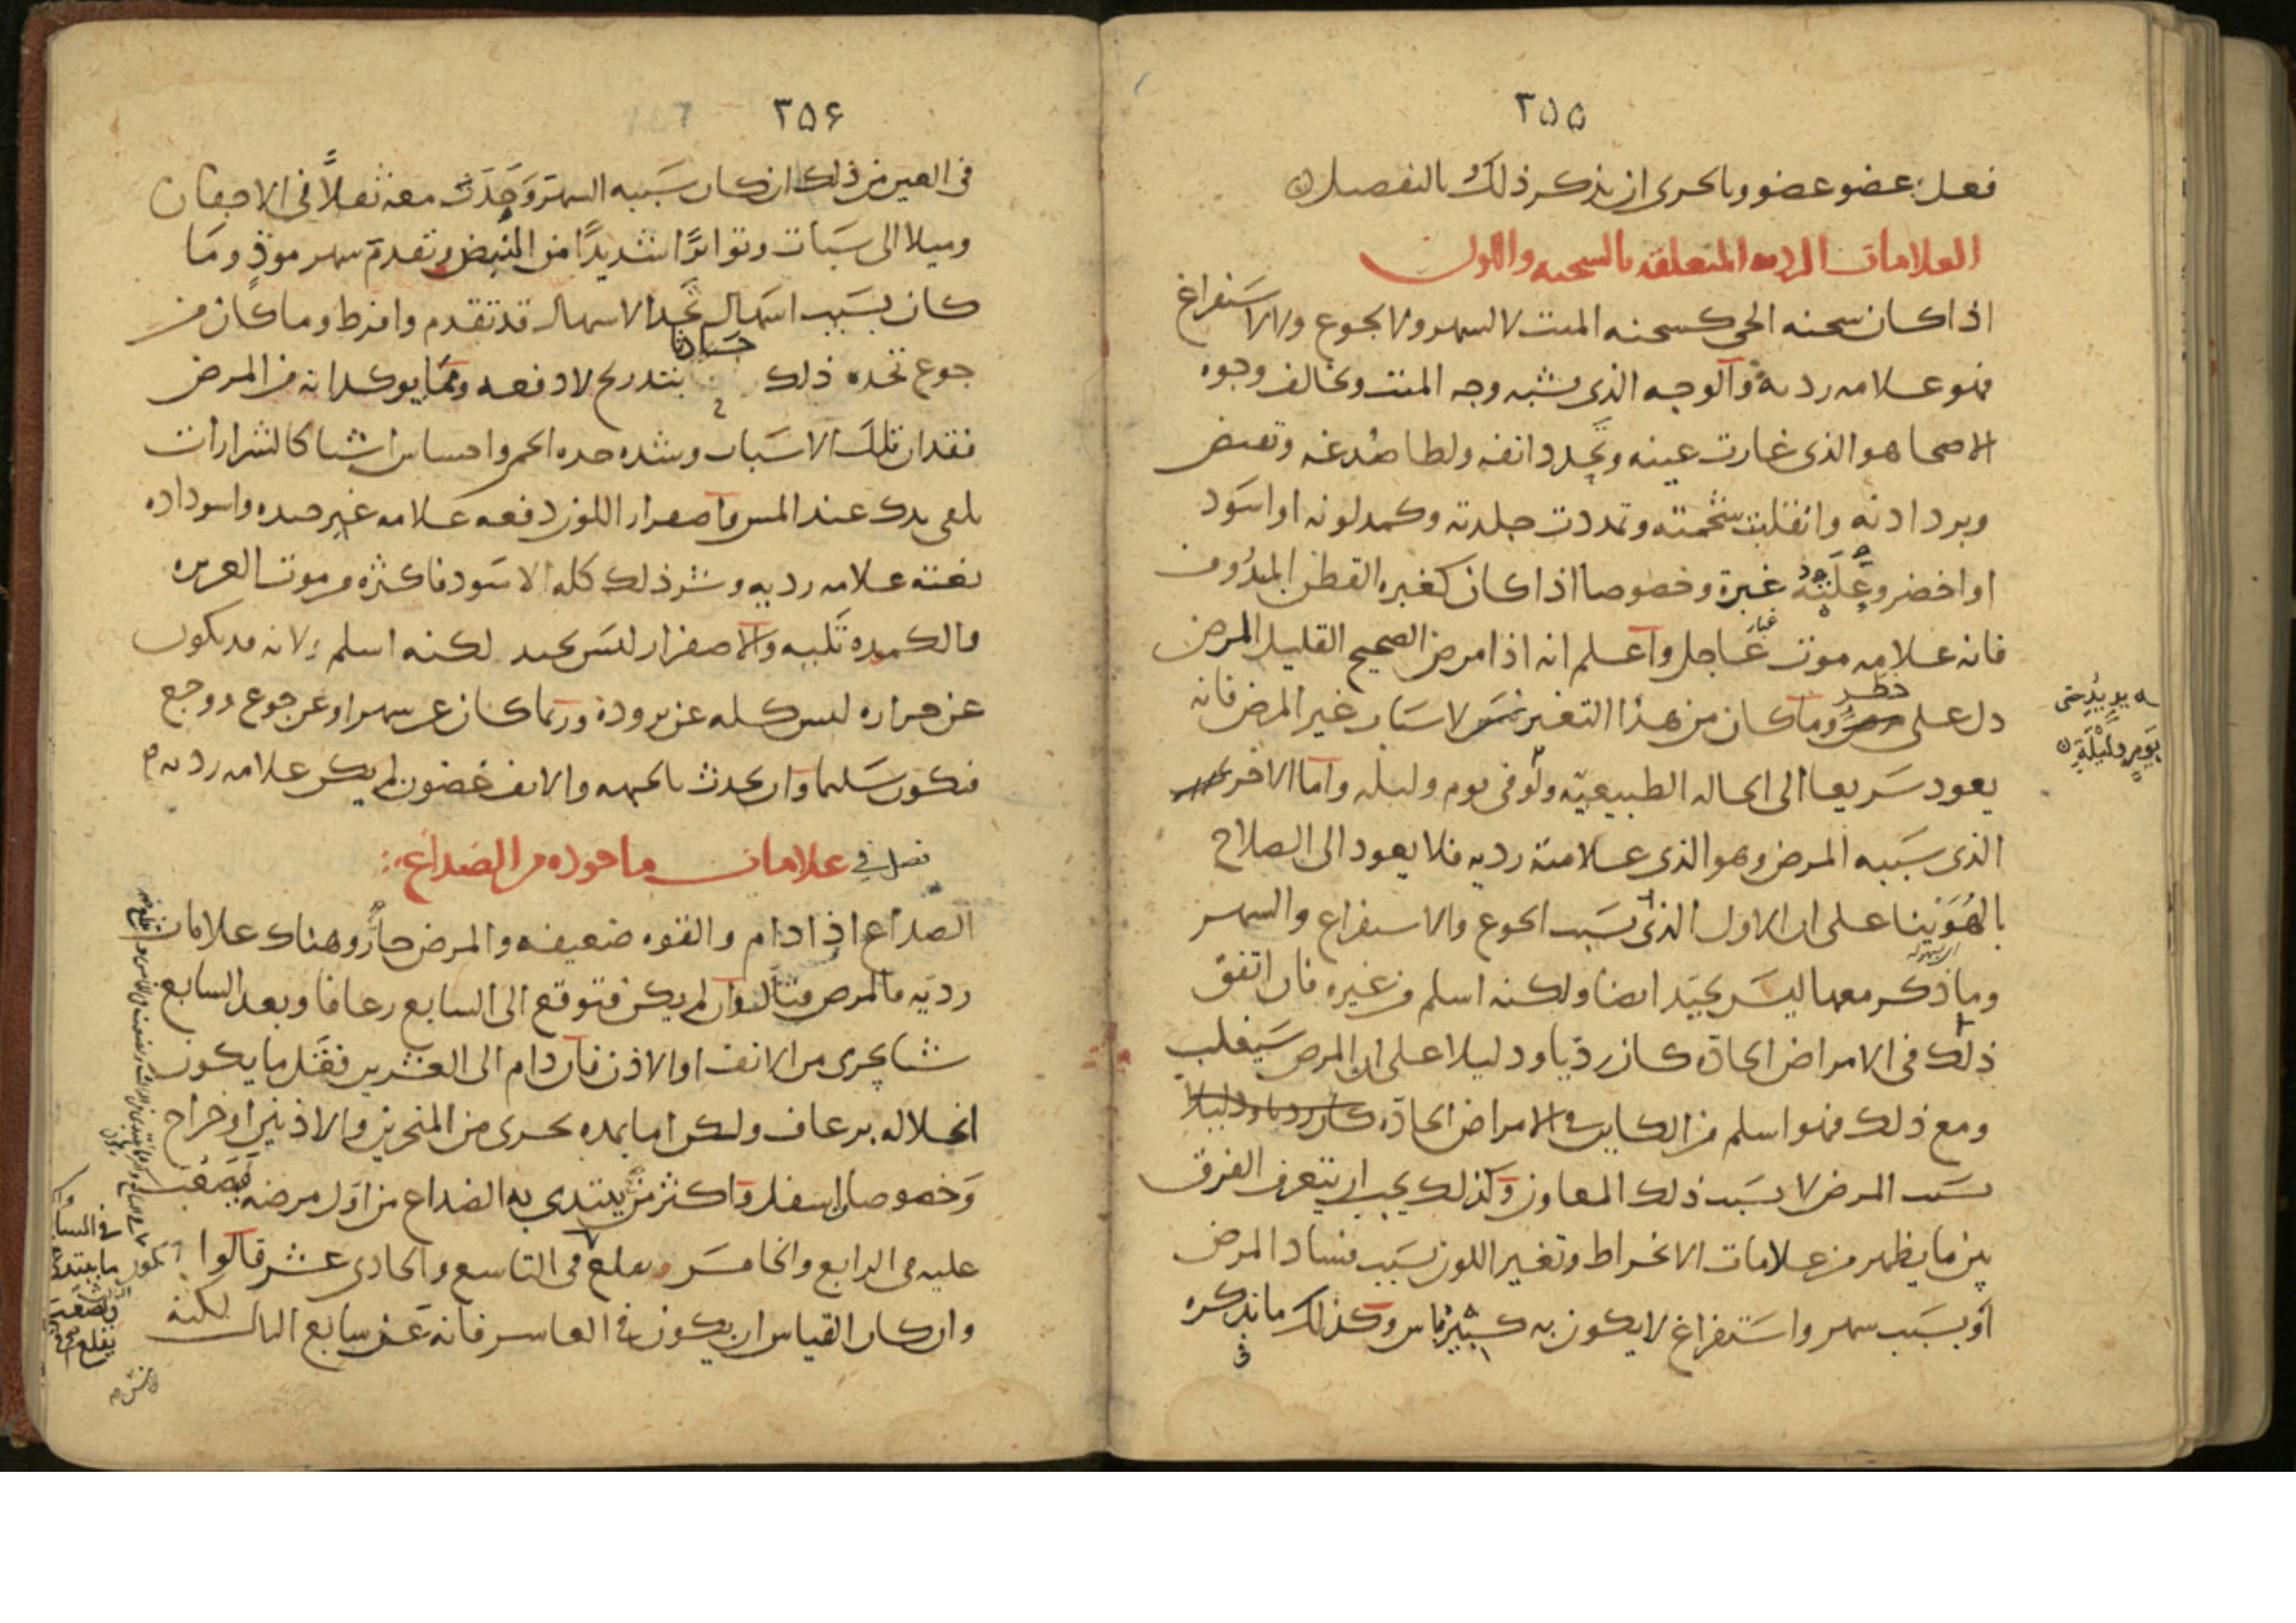 ٢٥٥
فعل عضو عضو وبالحرى ان يذكر ذلك بالتفصيل
العلامات الرديه المتعلقه بالسحنه واللون
اذا كان سحنه الحى كسحنه الميت لا لسهر ولا لجوع ولا لاستفراغ
فهو علامه رديه والوجه الذى يشبه وجه الميت ويخالف وجوه
الاصحا هو الذى غارت عينه وتحدد انفه ولطا صدغه وتقبض
وبرد اذنه وانقلبت شحمته وتمددت جلدته وكمد لونه او اسود
او اخضر وعلته غبرة وخصوصا اذا كان كغبره القطن المندوف
غبار
فانه علامه موت عاجل واعلم انه اذا مرض الصحيح القليل المرض
خطر
دل على وما كان من هذا التغير لاسباب غير المرض فانه
يعود سريعا الى الحاله الطبيعيّه ولو فى يوم وليله واما الاخر
الذى سببه المرض وهو الذى علامته رديه فلا يعود الى الصلاح
بالهُوَينا على ان الاول الذى بسبب الجوع والاستفراغ والسهر
وما ذكر معها ليس بجيّد ايضا ولكنه اسلم من غيره فان اتفق
ذلك فى الامراض الحادّه كان رديا ودليلا على ان المرض سيغلب
ومع ذلك فهو اسلم من الكاين فى الامراض الحادّه كان رديا ودليلا
بسبب المرض لا بسبب ذلك المعاون وكذلك يجب ان يتعرف الفرق
بين ما يظهر من علامات الانخراط وتغير اللون بسبب فساد المرض
او بسبب سهر واستفراغ لا يكون به كثير باس وكذلك ما نذكره
فى
يوم وليلة
٣٥۶
فى العين من ذلك ان كان سَببه السهر وَجَدتَ معه ثقلاً فى الاجفان
وميلا الى سَبات وتواترًا شديدًا من النبض وتقدم سهر موذٍ وما
كان بسَبب اسهال تجد الاسهال قد تقدم وافرط وما كان من
جوع تجده ذلك حادثا بتدريج لا دفعه ومما يوكد انه من المرض
فقدان تلك الاسَباب وشده حده الحمى واحساس اشيا كالشرارات
يلقى يدك عند المس واصفرار اللون دفعه علامه غير جيده واسوداده
بغتة علامه رديه وشر ذلك كله الاسَود فاكثره من موت الغريزه
والكمده تليه والاصفرار ليس بجيد لكنه اسلم لانه قد يكون
عن حراره ليس كله عن برودة وربما كان عن سهر او عن جوع ووجع
فيكون سَليما وان يحدث بالجبهه والانف غضون لم يكن علامه رديه
فصل فى علامات ماخوذه من الصداع
الصداع اذا دام والقوه ضعيفه والمرض حارّ وهناك علامات
رديّه فالمرض قتال وان لم يكن فتوقع الى السابع رعافا وبعد السابع
شيا يجرى من الانف او الاذن فان دام الى العشرين فقل ما يكون
انحلاله برعاف ولكن اما بمده يجرى من المنخرين والاذنين او خراج
وَخصوصا الى اسفل واكثر من يبتدى به الصداع من اوّل مرضه فيصعب
عليه فى الرابع والخامس ويقلع فى التاسع والحادى عشر قالوا
وان كان القياس ان يكون فى العاشر فانه عن سابع الثالث لكنه